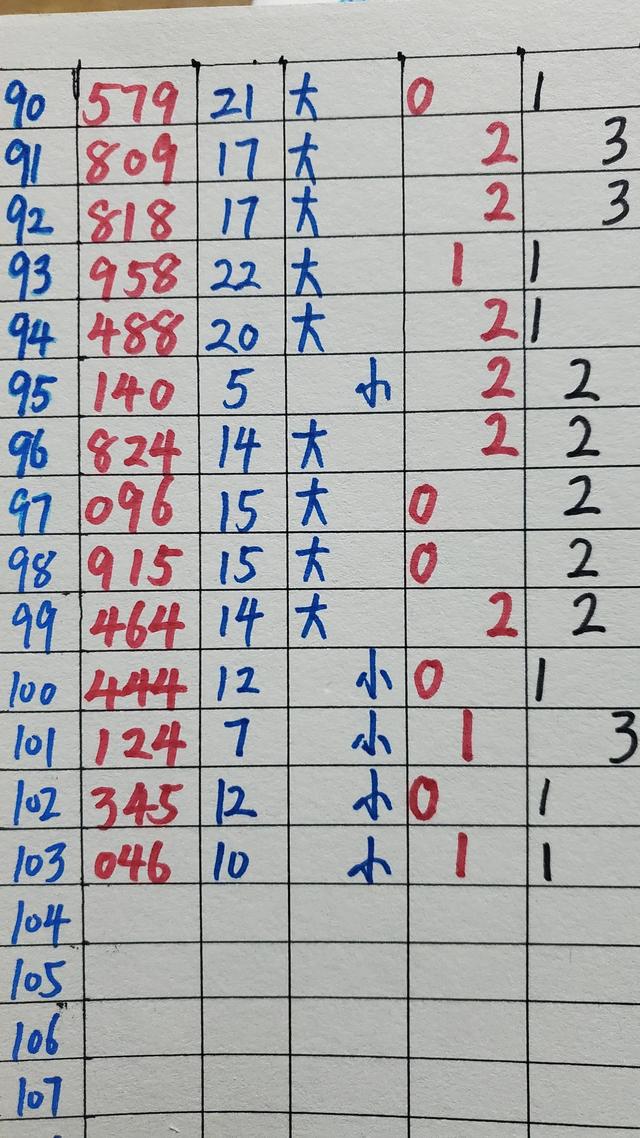 90 579 21 大 0 1
91 809 17 大 2 3
92 818 17 大 2 3
93 958 22 大 1 1
94 488 20 大 2 1
95 140 5 小 2 2
96 824 14 大 2 2
97 096 15 大 0 2
98 915 15 大 0 2
99 464 14 大 2 2
100 444 12 小 0 1
101 124 7 小 1 3
102 345 12 小 0 1
103 046 10 小 1 1
104
105
106
107